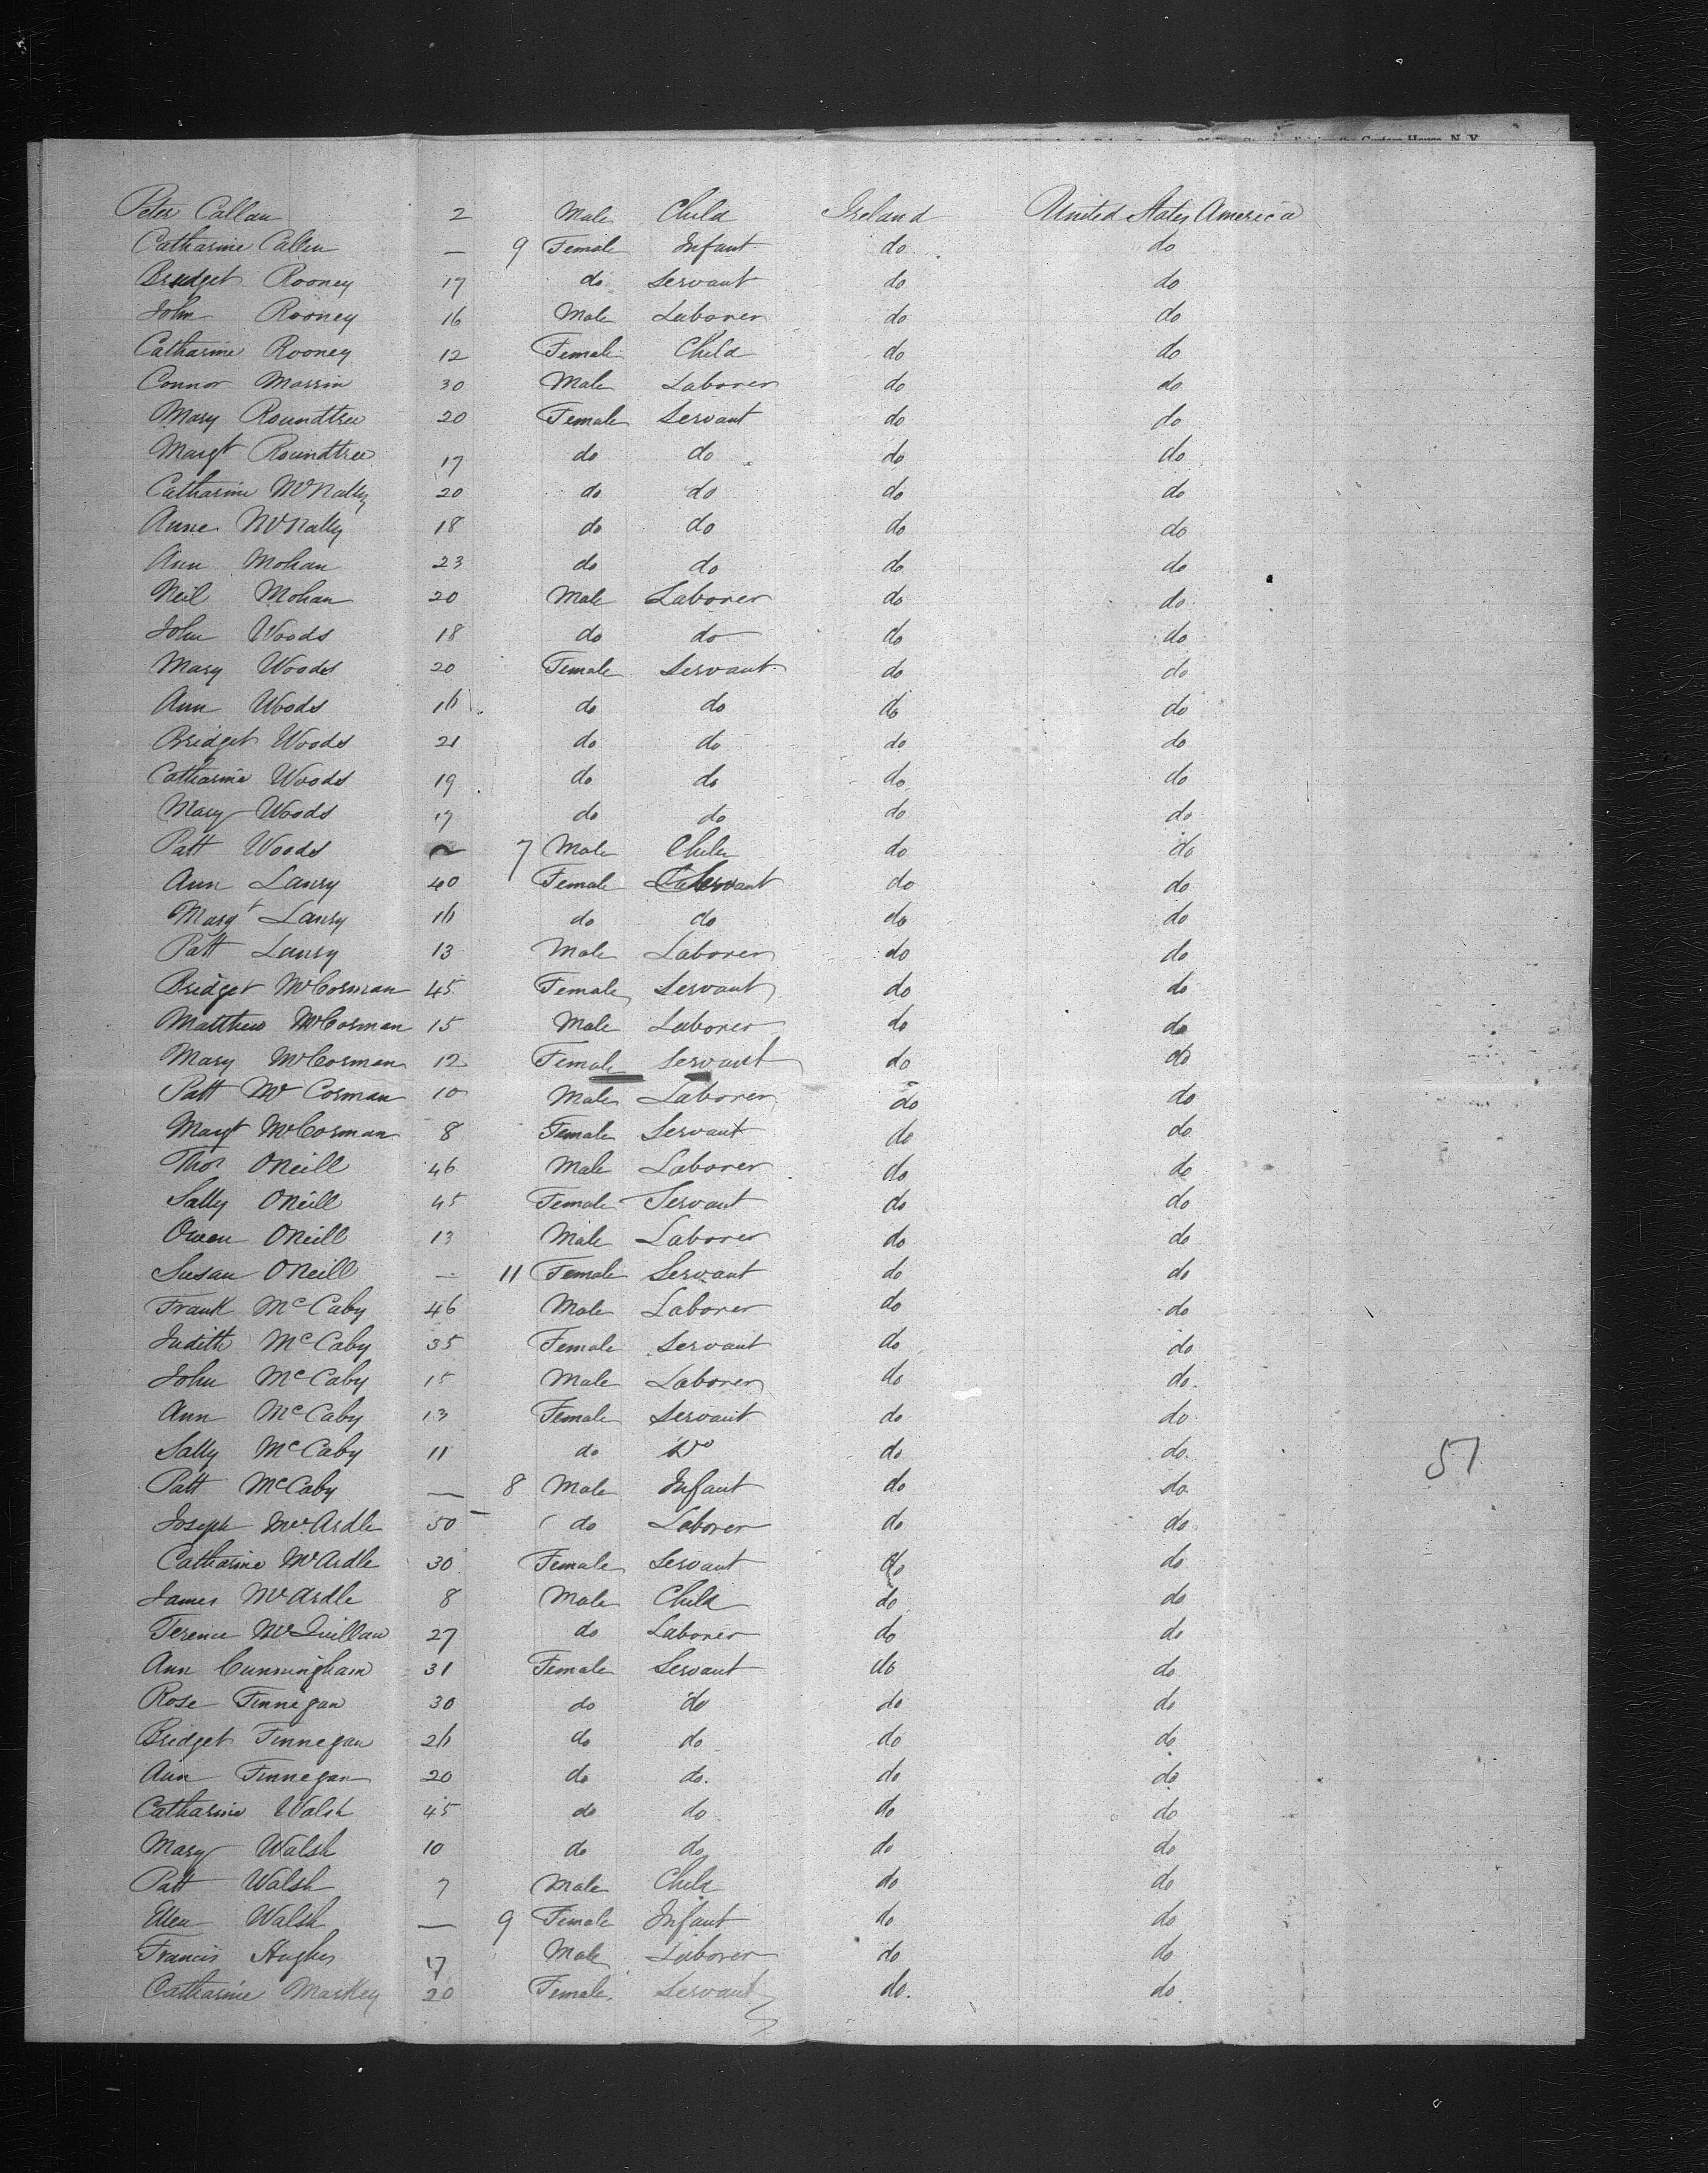 Custom House, N. Y.
Peter Callan 2 Male Child Ireland United States America
Catharine Callen — 9 Female Infant do do
Bridget Rooney 17 do Servant do do
John Rooney 16 Male Laborer do do
Catharine Rooney 12 Female Child do do
Connor Marrin 30 Male Laborer do do
Mary Roundtree 20 Female Servant do do
Margt Roundtree 17 do do do do
Catharine McNally 20 do do do do
Anne McNally 18 do do do do
Ann Mohan 23 do do do do
Neil Mohan 20 Male Laborer do do
John Woods 18 do do do do
Mary Woods 20 Female Servant do do
Ann Woods 16 do do do do
Bridget Woods 21 do do do do
Catharine Woods 19 do do do do
Mary Woods 17 do do do do
Patt Woods 7 Male Child do do
Ann Lanry 40 Female Servant do do
Margt Lanry 16 do do do do
Patt Lanry 13 Male Laborer do do
Bridget McCorman 45 Female Servant do do
Matthew McCorman 15 Male Laborer do do
Mary McCorman 12 Female Servant do do
Patt McCorman 10 Male Laborer do do
Margt McCorman 8 Female Servant do do
Thos ONeill 46 Male Laborer do do
Sally ONeill 45 Female Servant do do
Owen ONeill 13 Male Laborer do do
Susan ONeill — 11 Female Servant do do
Frank McCaby 46 Male Laborer do do
Judith McCaby 35 Female Servant do do
John McCaby 15 Male Laborer do do
Ann McCaby 13 Female Servant do do
Sally McCaby 11 do Do do do
51
Patt McCaby — 8 Male Infant do do
Joseph McArdle 50 do Laborer do do
Catharine McArdle 30 Female Servant do do
James McArdle 8 Male Child do do
Terence McQuillan 27 do Laborer do do
Ann Cunningham 31 Female Servant do do
Rose Finnegan 30 do do do do
Bridget Finnegan 26 do do do do
Ann Finnegan 20 do do do do
Catharine Walsh 45 do do do do
Mary Walsh 10 do do do do
Patt Walsh 7 Male Child do do
Ellen Walsh — 9 Female Infant do do
Francis Hughes 17 Male Laborer do do
Catharine Markey 20 Female Servant do do